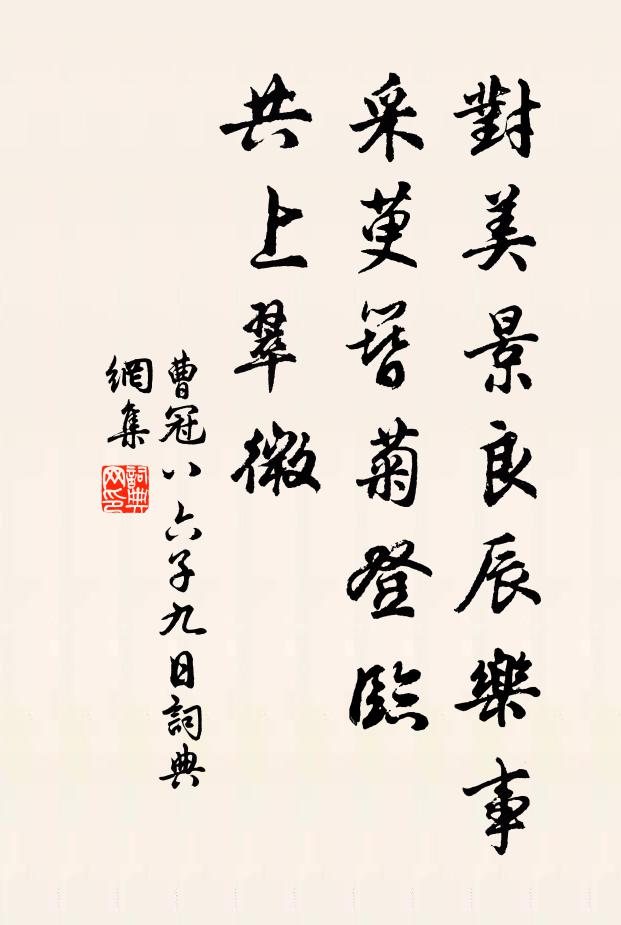 對美景良辰樂事
采萸簪菊登臨
共上翠微
曹冠八六子九日詞典
網集
詞典网印